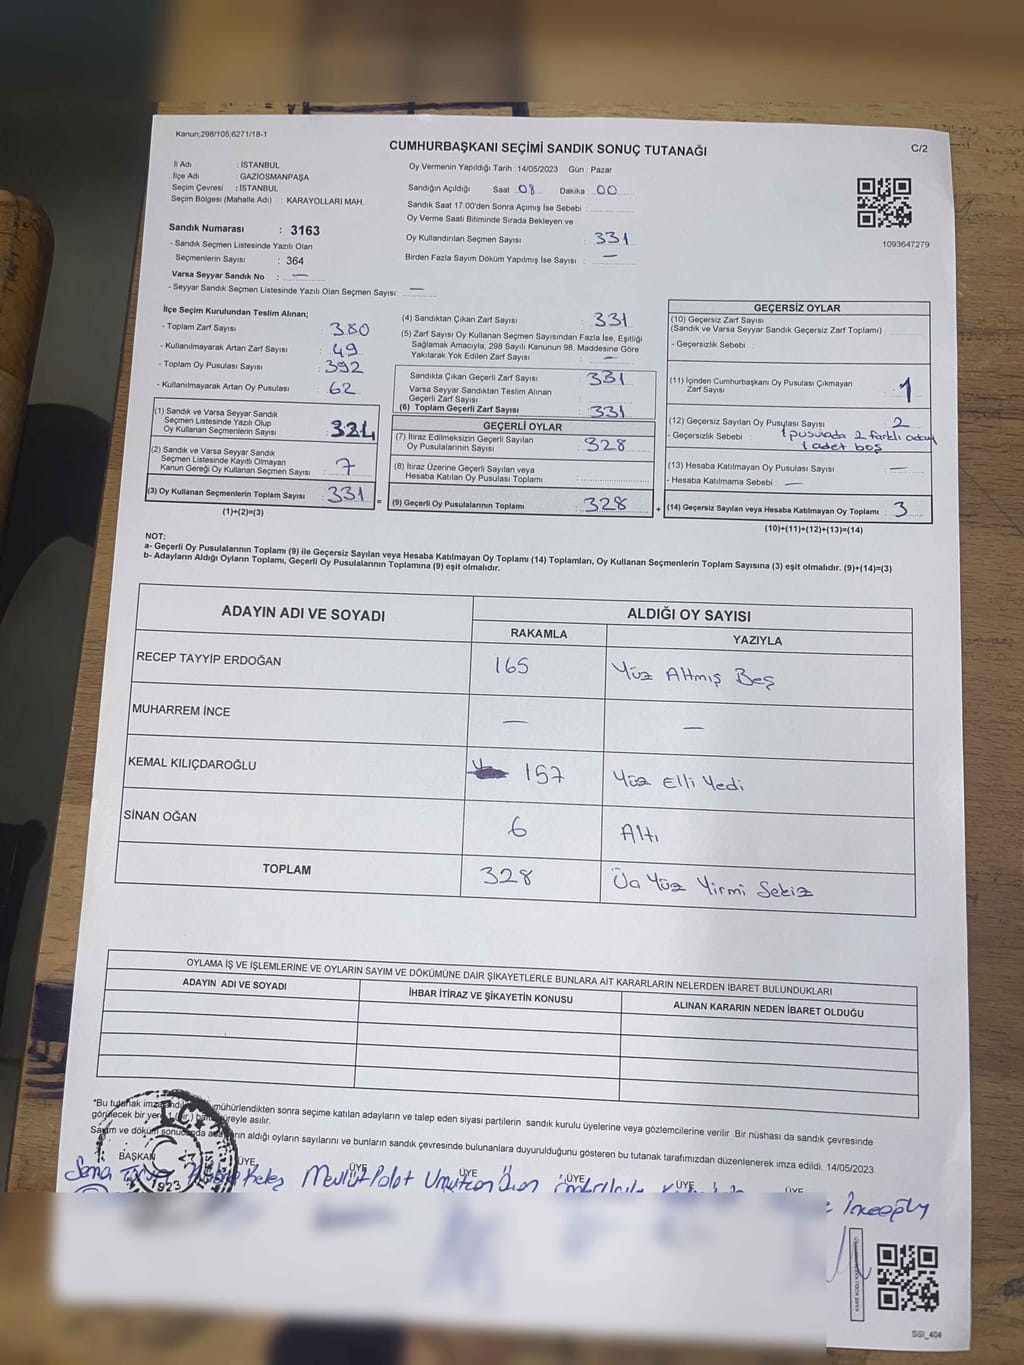 Kanun;298/105,6271/18-1
CUMHURBAŞKANI SEÇİMİ SANDIK SONUÇ TUTANAĞI
C/2
İl Adı : İSTANBUL
İlçe Adı : GAZİOSMANPAŞA
Seçim Çevresi : İSTANBUL
Seçim Bölgesi (Mahalle Adı) : KARAYOLLARI MAH.
Oy Vermenin Yapıldığı Tarih : 14/05/2023 Gün : Pazar
Sandığın Açıldığı Saat : 08 Dakika : 00
Sandık Saat 17.00'den Sonra Açılmış İse Sebebi :
Oy Verme Saati Bitiminde Sırada Bekleyen ve
Oy Kullandırılan Seçmen Sayısı : 331
Birden Fazla Sayım Döküm Yapılmış İse Sayısı : —
1093647279
Sandık Numarası : 3163
- Sandık Seçmen Listesinde Yazılı Olan
Seçmenlerin Sayısı : 364
Varsa Seyyar Sandık No : —
- Seyyar Sandık Seçmen Listesinde Yazılı Olan Seçmen Sayısı: —
İlçe Seçim Kurulundan Teslim Alınan;
- Toplam Zarf Sayısı : 380
- Kullanılmayarak Artan Zarf Sayısı : 49
- Toplam Oy Pusulası Sayısı : 392
- Kullanılmayarak Artan Oy Pusulası : 62
(1) Sandık ve Varsa Seyyar Sandık
Seçmen Listesinde Yazılı Olup
Oy Kullanan Seçmenlerin Sayısı : 324
(2) Sandık ve Varsa Seyyar Sandık
Seçmen Listesinde Kayıtlı Olmayan
Kanun Gereği Oy Kullanan Seçmen Sayısı : 7
(3) Oy Kullanan Seçmenlerin Toplam Sayısı : 331
(1)+(2)=(3)
(4) Sandıktan Çıkan Zarf Sayısı : 331
(5) Zarf Sayısı Oy Kullanan Seçmen Sayısından Fazla İse, Eşitliği
Sağlamak Amacıyla, 298 Sayılı Kanunun 98. Maddesine Göre
Yakılarak Yok Edilen Zarf Sayısı : —
Sandıkta Çıkan Geçerli Zarf Sayısı : 331
Varsa Seyyar Sandıktan Teslim Alınan
Geçerli Zarf Sayısı :
(6) Toplam Geçerli Zarf Sayısı : 331
GEÇERLİ OYLAR
(7) İtiraz Edilmeksizin Geçerli Sayılan
Oy Pusulalarının Sayısı : 328
(8) İtiraz Üzerine Geçerli Sayılan veya
Hesaba Katılan Oy Pusulası Toplamı :
(9) Geçerli Oy Pusulalarının Toplamı : 328
GEÇERSİZ OYLAR
(10) Geçersiz Zarf Sayısı
(Sandık ve Varsa Seyyar Sandık Geçersiz Zarf Toplamı) :
- Geçersizlik Sebebi :
(11) İçinden Cumhurbaşkanı Oy Pusulası Çıkmayan
Zarf Sayısı : 1
(12) Geçersiz Sayılan Oy Pusulası Sayısı : 2
- Geçersizlik Sebebi : 1 pusulada 2 farklı aday
1 adet boş
(13) Hesaba Katılmayan Oy Pusulası Sayısı : —
- Hesaba Katılmama Sebebi : —
(14) Geçersiz Sayılan veya Hesaba Katılmayan Oy Toplamı : 3
(10)+(11)+(12)+(13)=(14)
NOT:
a- Geçerli Oy Pusulalarının Toplamı (9) ile Geçersiz Sayılan veya Hesaba Katılmayan Oy Toplamı (14) Toplamları, Oy Kullanan Seçmenlerin Toplam Sayısına (3) eşit olmalıdır. (9)+(14)=(3)
b- Adayların Aldığı Oyların Toplamı, Geçerli Oy Pusulalarının Toplamına (9) eşit olmalıdır.
ADAYIN ADI VE SOYADI ALDIĞI OY SAYISI
RAKAMLA YAZIYLA
RECEP TAYYİP ERDOĞAN 165 Yüz Altmış Beş
MUHARREM İNCE — —
KEMAL KILIÇDAROĞLU 157 Yüz Elli Yedi
SİNAN OĞAN 6 Altı
TOPLAM 328 Üç Yüz Yirmi Sekiz
OYLAMA İŞ VE İŞLEMLERİNE VE OYLARIN SAYIM VE DÖKÜMÜNE DAİR ŞİKAYETLERLE BUNLARA AİT KARARLARIN NELERDEN İBARET BULUNDUKLARI
ADAYIN ADI VE SOYADI İHBAR İTİRAZ VE ŞİKAYETİN KONUSU ALINAN KARARIN NEDEN İBARET OLDUĞU
*Bu tutanak mühürlendikten sonra seçime katılan adayların ve talep eden siyasi partilerin sandık kurulu üyelerine veya gözlemcilerine verilir. Bir nüshası da sandık çevresinde
görülecek bir yere süreyle asılır.
Sayım ve döküm sonucunda adayların aldığı oyların sayılarını ve bunların sandık çevresinde bulunanlara duyurulduğunu gösteren bu tutanak tarafımızdan düzenlenerek imza edildi. 14/05/2023
BAŞKAN ÜYE ÜYE ÜYE ÜYE ÜYE ÜYE
Sema Mevlüt Polat
1923
SSI_404